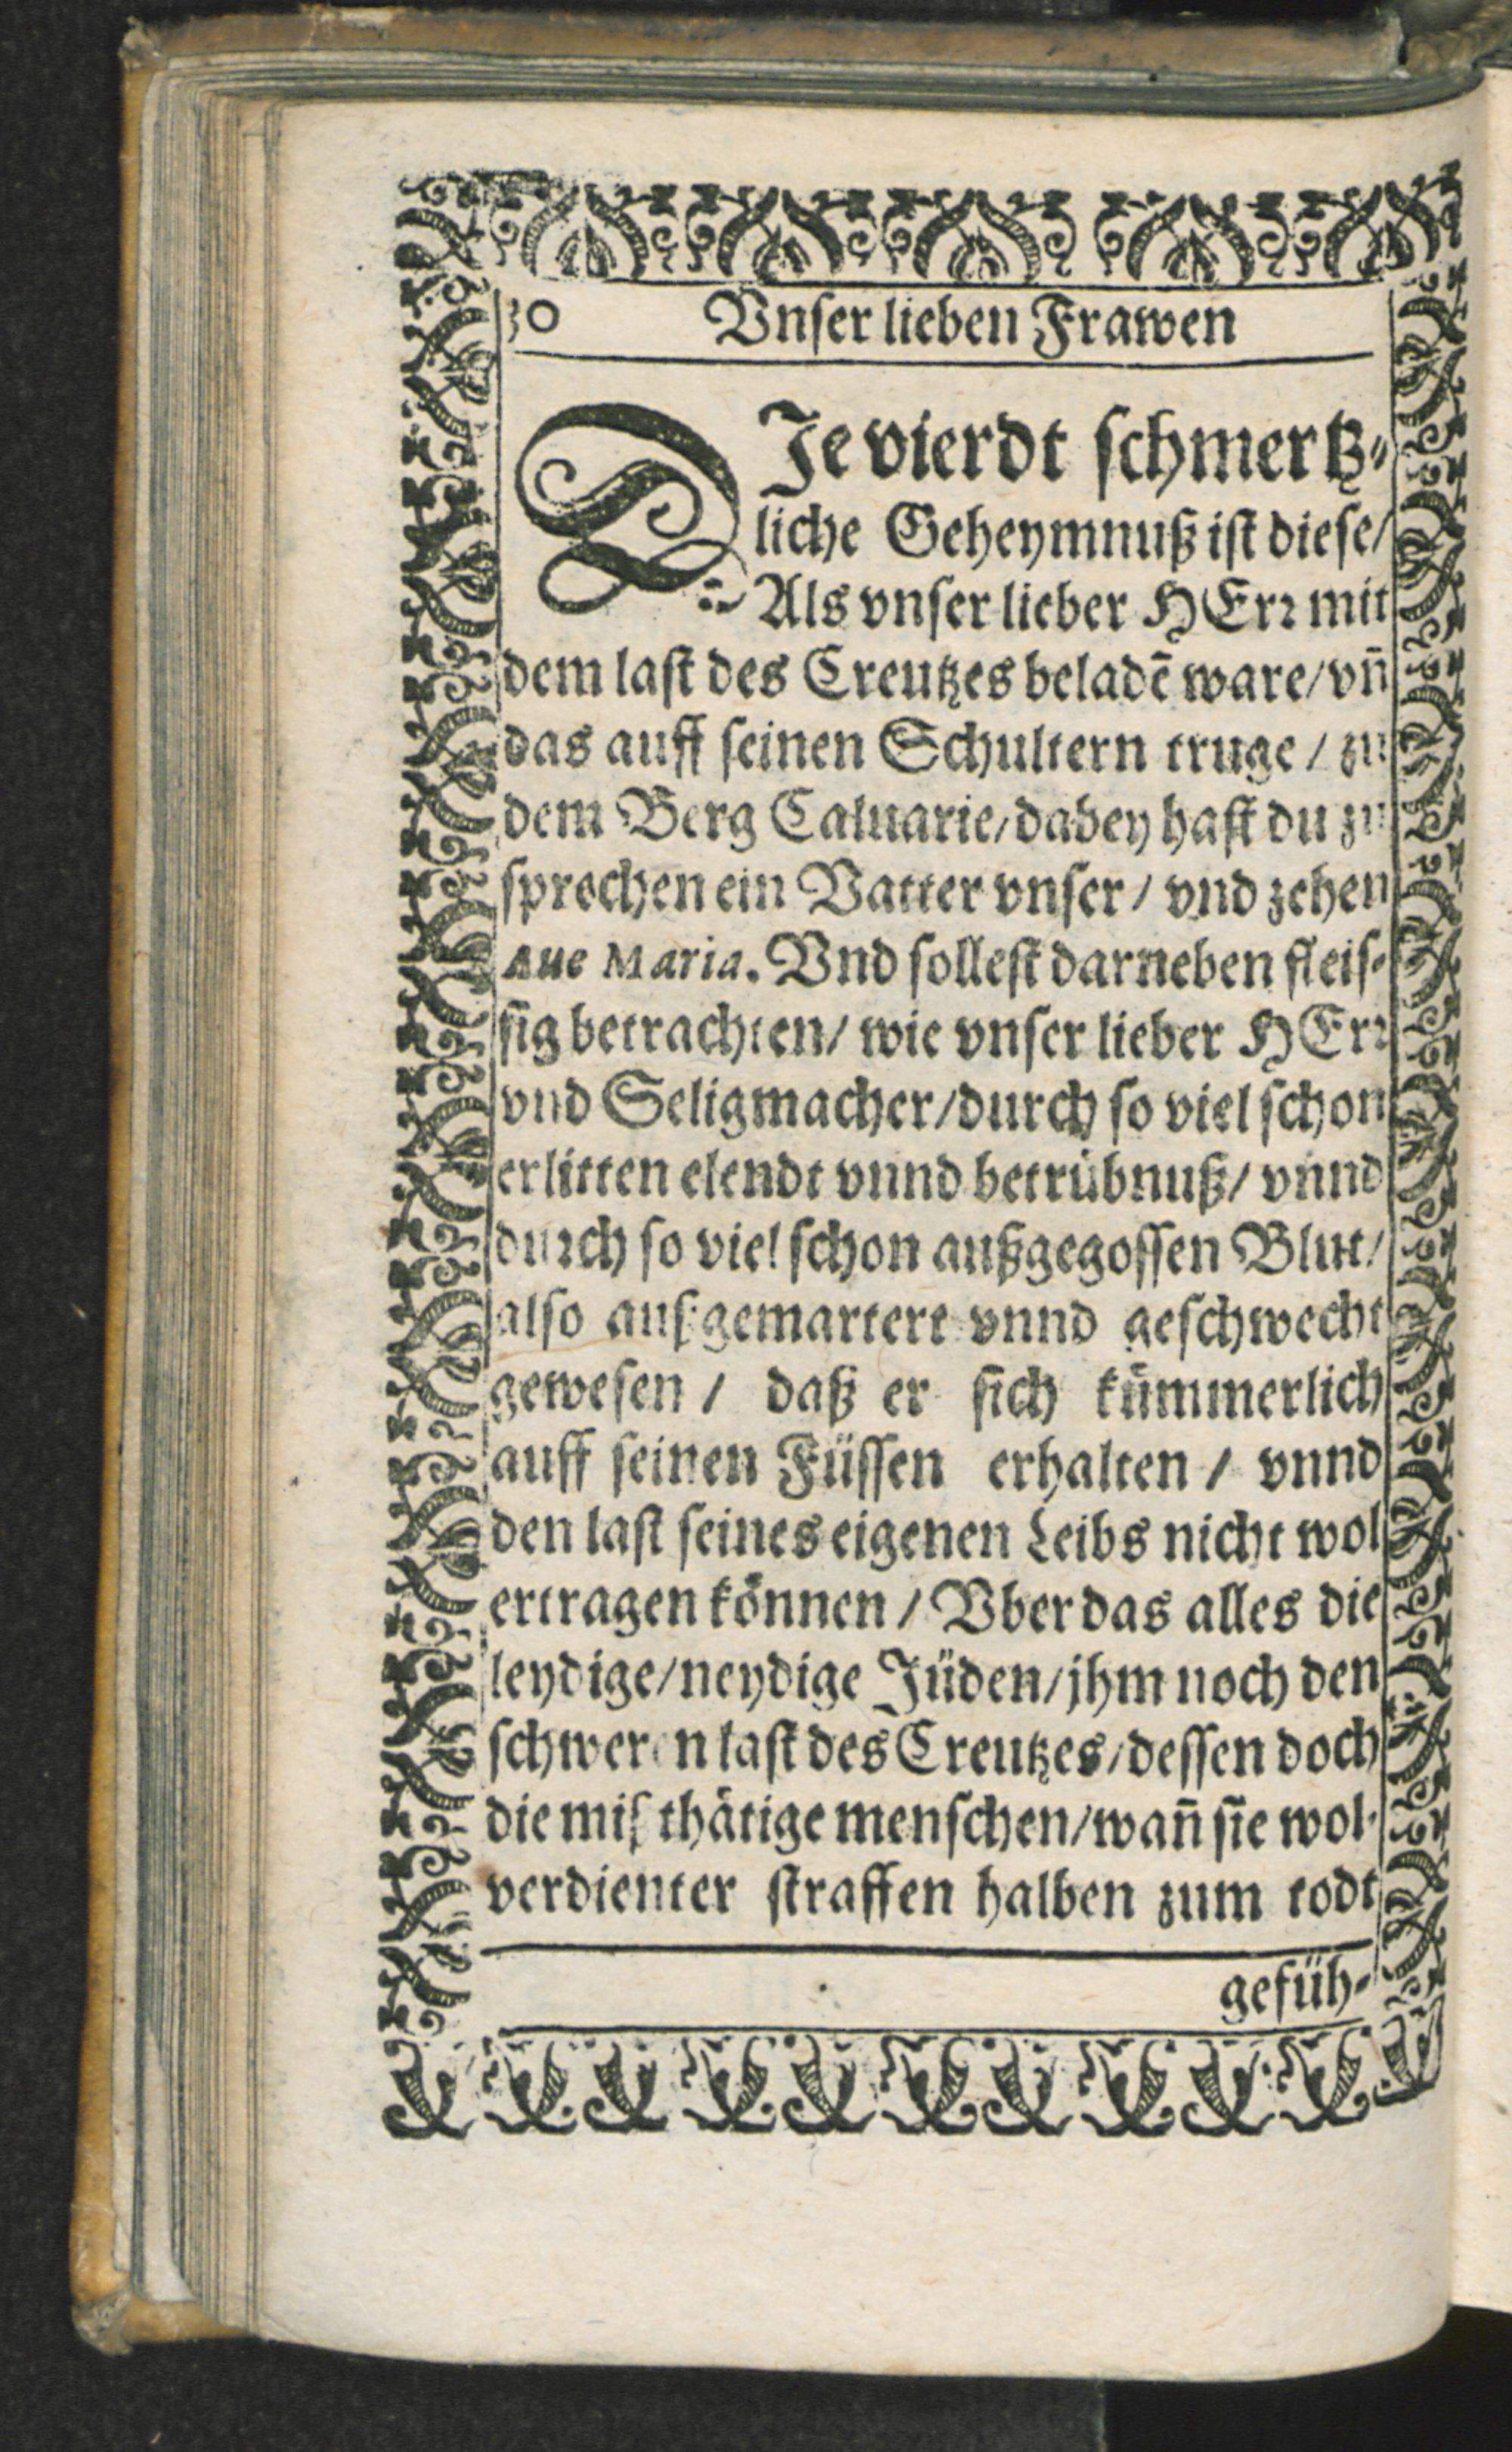 30 Vnser lieben Frawen
DJe vierdt schmertz⸗
liche Geheymnuß ist diese/
Als vnser lieber HErr mit
dem last des Creutzes beladē ware/vñ
das auff seinen Schultern truge / zu
dem Berg Caluarie/dabey hast du zu
sprechen ein Vatter vnser / vnd zehen
Aue Maria. Vnd sollest darneben fleis⸗
sig betrachten/ wie vnser lieber HErr
vnd Seligmacher/durch so viel schon
erlitten elendt vnnd betrübnuß/ vnnd
durch so viel schon außgegossen Blut/
also außgemartert vnnd geschwecht
gewesen / daß er sich kümmerlich
auff seinen Füssen erhalten / vnnd
den last seines eigenen Leibs nicht wol
ertragen können / Vber das alles die
leydige/neydige Jüden/jhm noch den
schweren last des Creutzes/dessen doch
die mißthätige menschen/wañ sie wol⸗
verdienter straffen halben zum todt
gefüh⸗